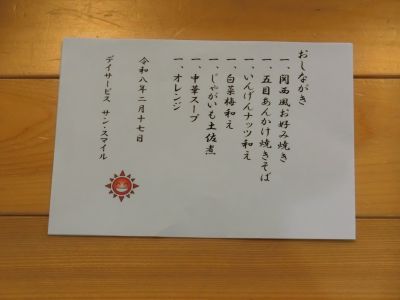 おしながき
一、関西風お好み焼き
一、五目あんかけ焼きそば
一、いんげんナッツ和え
一、白菜梅和え
一、じゃがいも土佐煮
一、中華スープ
一、オレンジ
令和八年二月十七日
デイサービス サン・スマイル